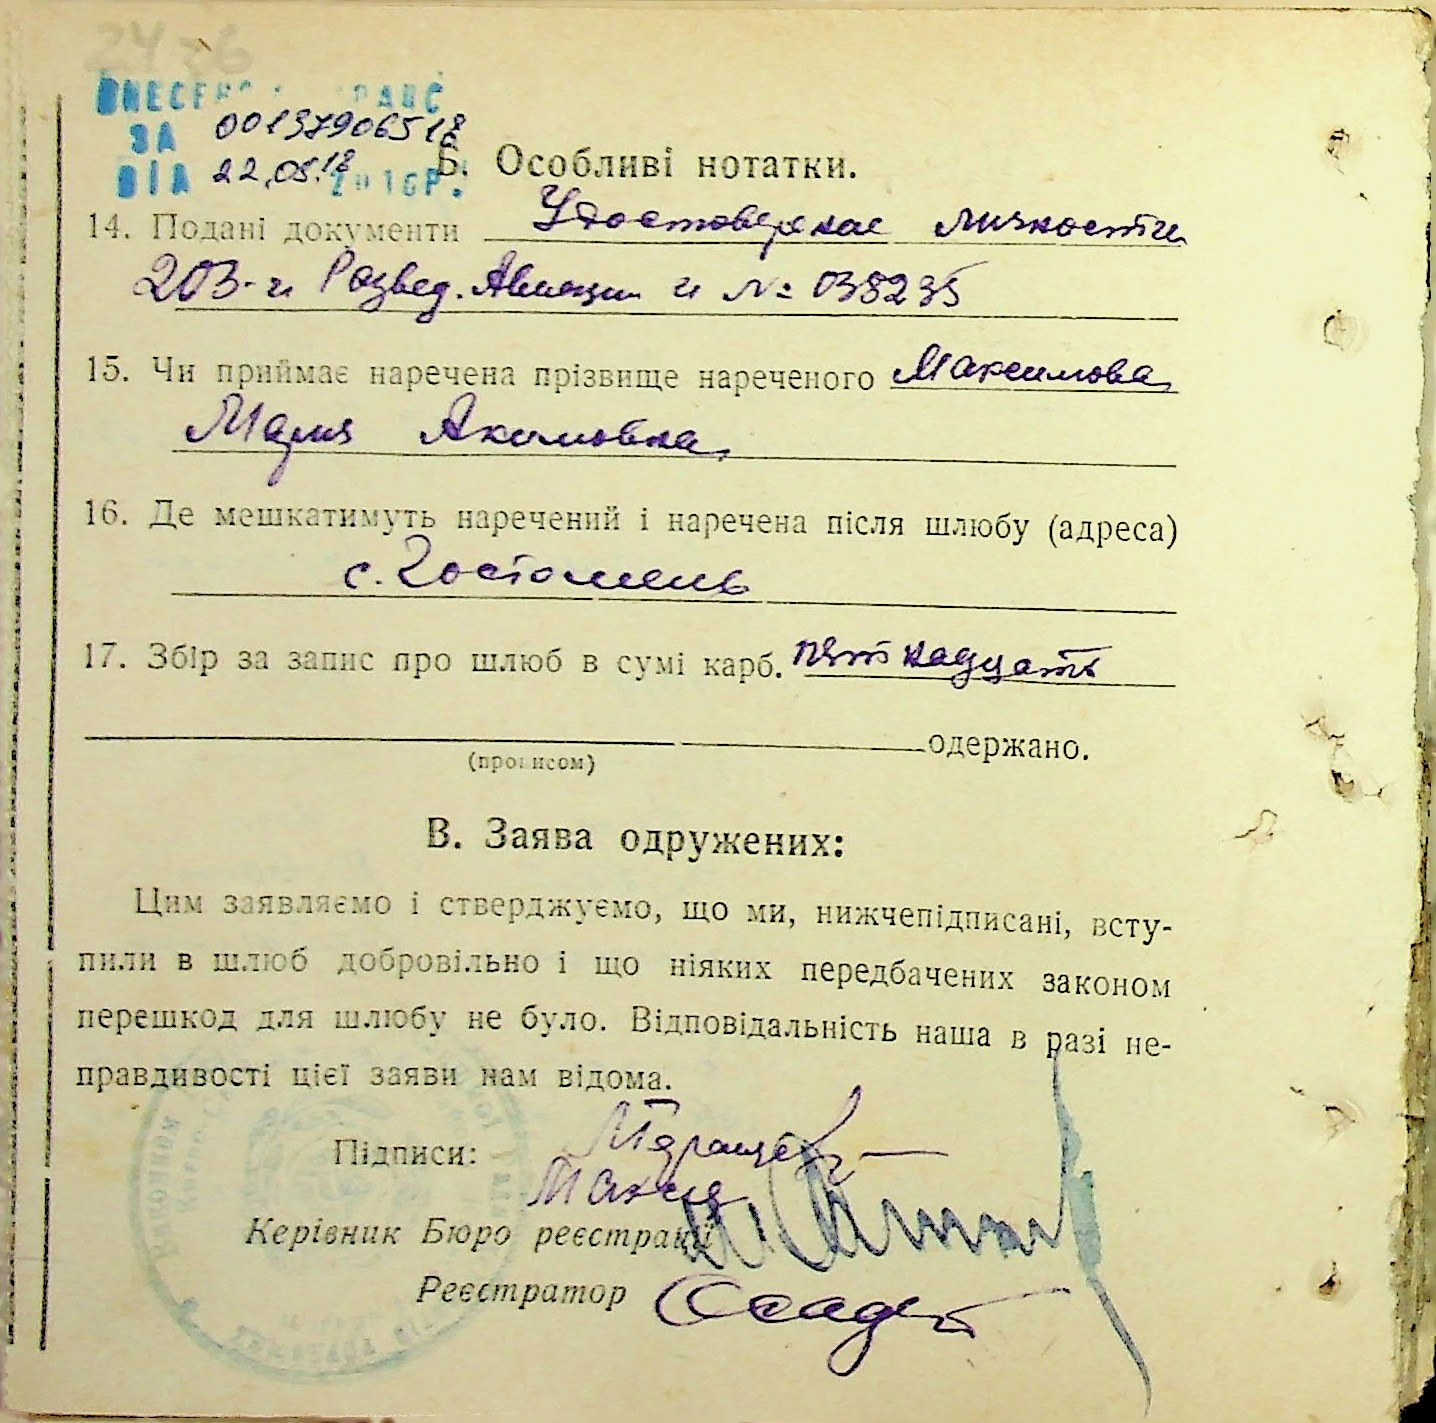 2476
ВНЕСЕНО ДРАЦС
ЗА 00137906518
ВІД 22.05.18 201 Р.
Б. Особливі нотатки.
14. Подані документи Удостоверение личности
203-й Развед. Авиации и № 038235
15. Чи приймає наречена прізвище нареченого Максимова
Мария Акимовна
16. Де мешкатимуть наречений і наречена після шлюбу (адреса)
с. Гостомель
17. Збір за запис про шлюб в сумі карб. пятнадцать
одержано.
(прописом)
В. Заява одружених:
Цим заявляємо і стверджуємо, що ми, нижчепідписані, всту-
пили в шлюб добровільно і що ніяких передбачених законом
перешкод для шлюбу не було. Відповідальність наша в разі не-
правдивості цієї заяви нам відома.
Підписи:
Керівник Бюро реєстрації
Реєстратор